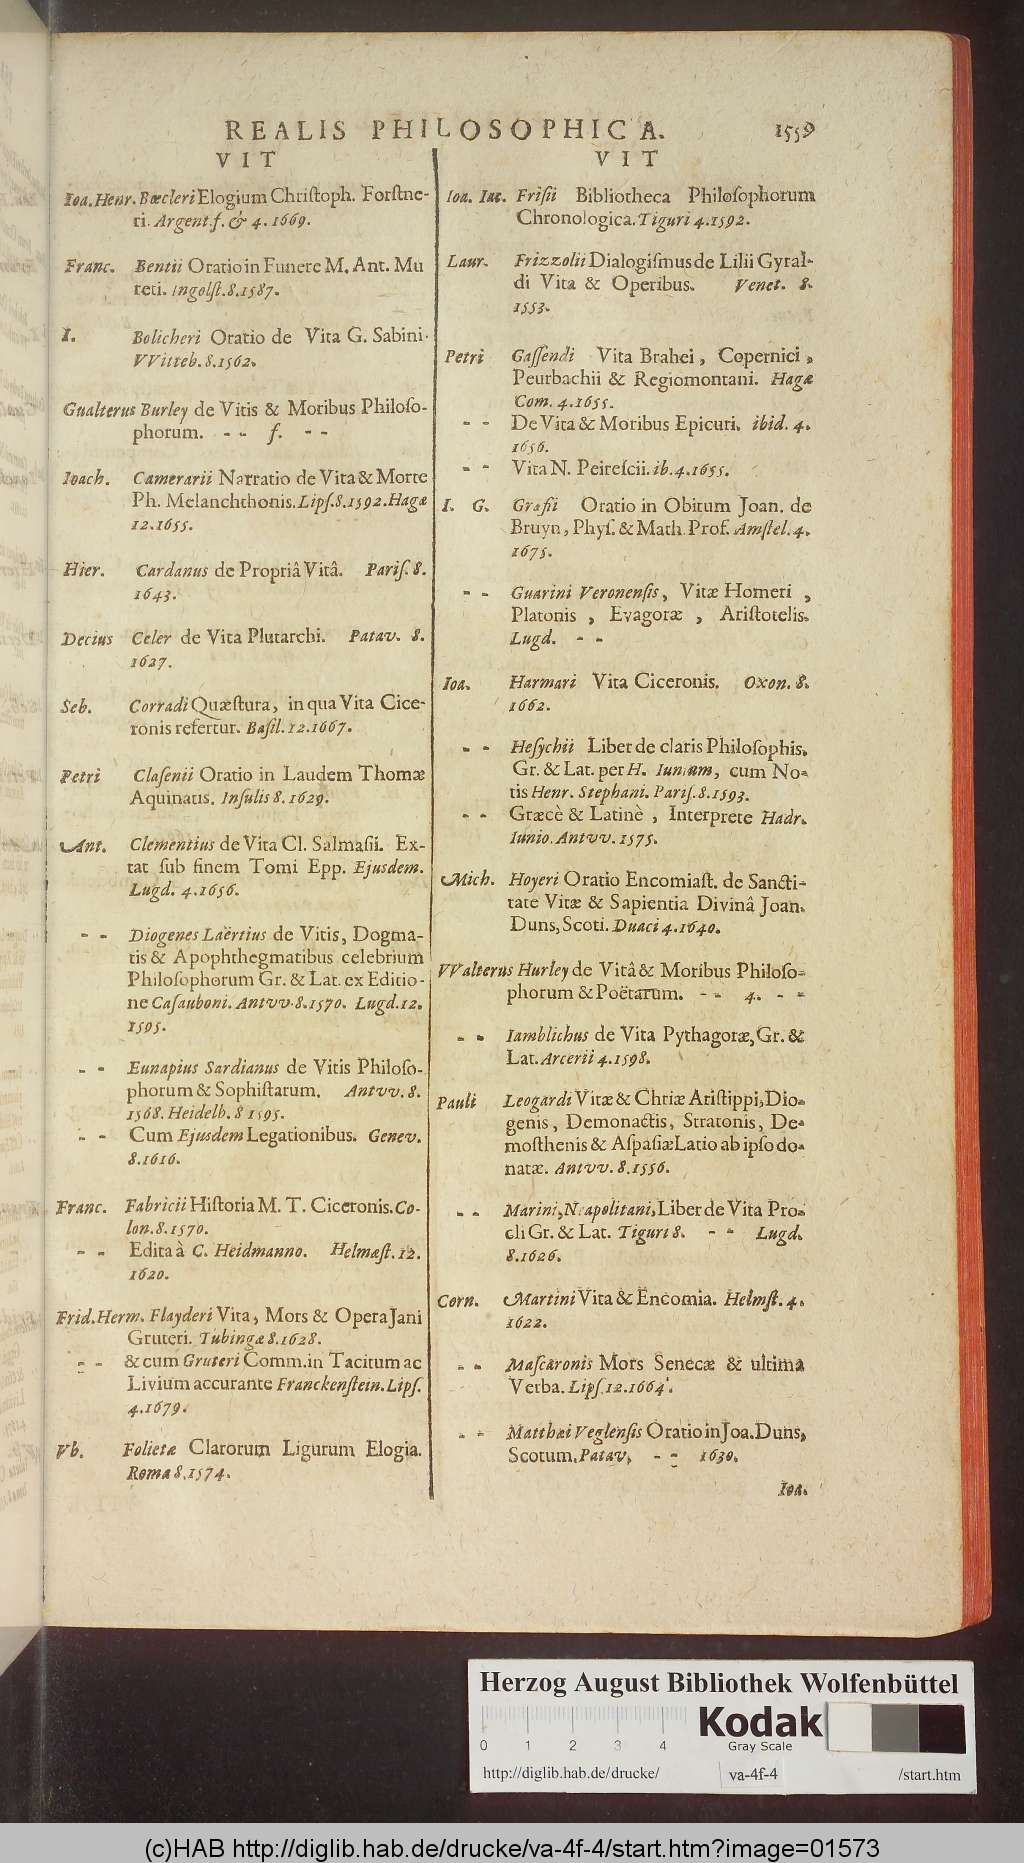 REALIS PHILOSOPHICA. 1559
VIT
Ioa. Henr. Bœcleri Elogium Christoph. Forstne-
ri. Argent. f. & 4. 1669.
Franc. Bentii Oratio in Funere M. Ant. Mu
reti. Ingolst. 8. 1587.
I. Bolicheri Oratio de Vita G. Sabini.
VVitteb. 8. 1562.
Gualterus Burley de Vitis & Moribus Philoso-
phorum. - - f. - -
Ioach. Camerarii Narratio de Vita & Morte
Ph. Melanchthonis. Lips. 8. 1592. Hagæ
12. 1655.
Hier. Cardanus de Propriâ Vitâ. Paris. 8.
1643.
Decius Celer de Vita Plutarchi. Patav. 8.
1627.
Seb. Corradi Quæstura, in qua Vita Cice-
ronis refertur. Basil. 12. 1667.
Petri Clasenii Oratio in Laudem Thomæ
Aquinatis. Insulis 8. 1629.
Ant. Clementius de Vita Cl. Salmasii. Ex-
tat sub finem Tomi Epp. Ejusdem.
Lugd. 4. 1656.
- - Diogenes Laërtius de Vitis, Dogma-
tis & Apophthegmatibus celebrium
Philosophorum Gr. & Lat. ex Editio-
ne Casauboni. Antvv. 8. 1570. Lugd. 12.
1595.
- - Eunapius Sardianus de Vitis Philoso-
phorum & Sophistarum. Antvv. 8.
1568. Heidelb. 8 1595.
- - Cum Ejusdem Legationibus. Genev.
8. 1616.
Franc. Fabricii Historia M. T. Ciceronis. Co-
lon. 8. 1570.
- - Edita à C. Heidmanno. Helmæst. 12.
1620.
Frid. Herm. Flayderi Vita, Mors & Opera Jani
Gruteri. Tubingæ 8. 1628.
- - & cum Gruteri Comm. in Tacitum ac
Livium accurante Franckenstein. Lips.
4. 1679.
Vb. Folietæ Clarorum Ligurum Elogia.
Roma 8. 1574.
VIT
Ioa. Iac. Frisii Bibliotheca Philosophorum
Chronologica. Tiguri 4. 1592.
Laur. Frizzolii Dialogismus de Lilii Gyral-
di Vita & Operibus. Venet. 8.
1553.
Petri Gassendi Vita Brahei, Copernici,
Peurbachii & Regiomontani. Hagæ
Com. 4. 1655.
- - De Vita & Moribus Epicuri. ibid. 4.
1656.
- - Vita N. Peirescii. ib. 4. 1655.
I. G. Græfii Oratio in Obitum Joan. de
Bruyn, Phys. & Math. Prof. Amstel. 4.
1675.
- - Guarini Veronensis, Vitæ Homeri,
Platonis, Evagoræ, Aristotelis.
Lugd. - -
Ioa. Harmari Vita Ciceronis. Oxon. 8.
1662.
- - Hesychii Liber de claris Philosophis.
Gr. & Lat. per H. Iunium, cum No-
tis Henr. Stephani. Paris. 8. 1593.
- - Græcè & Latinè, Interprete Hadr.
Iunio. Antvv. 1575.
Mich. Hoyeri Oratio Encomiast. de Sancti-
tate Vitæ & Sapientia Divinâ Joan.
Duns, Scoti. Duaci 4. 1640.
VValterus Hurley de Vitâ & Moribus Philoso-
phorum & Poëtarum. - - 4. - -
- - Iamblichus de Vita Pythagoræ, Gr. &
Lat. Arcerii 4. 1598.
Pauli Leogardi Vitæ & Chriæ Aristippi, Dio-
genis, Demonactis, Stratonis, De-
mosthenis & Aspasiæ Latio ab ipso do-
natæ. Antvv. 8. 1556.
- - Marini, Neapolitani, Liber de Vita Pro-
cli Gr. & Lat. Tiguri 8. - - Lugd.
8. 1626.
Corn. Martini Vita & Encomia. Helmst. 4.
1622.
- - Mascaronis Mors Senecæ & ultima
Verba. Lips. 12. 1664.
- - Matthæi Veglensis Oratio in Joa. Duns,
Scotum. Patav. - - 1630.
Ioa.
Herzog August Bibliothek Wolfenbüttel
Kodak
Gray Scale
0 1 2 3 4
http://diglib.hab.de/drucke/ va-4f-4 /start.htm
(c)HAB http://diglib.hab.de/drucke/va-4f-4/start.htm?image=01573